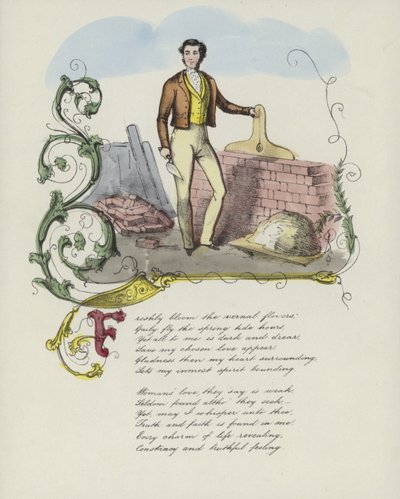 Freshly bloom the vernal flowers;
Gaily fly the spring tide hours,
Yet all to me is dark and drear,
Save my chosen love appear.
Gladness then my heart surrounding,
Sets my inmost spirit bounding.
Womans' love, they say is weak,
Seldom found altho' they seek—
Yet, may I whisper unto thee,
Truth and faith is found in one.
Every charm of life revealing,
Constancy and truthful feeling.